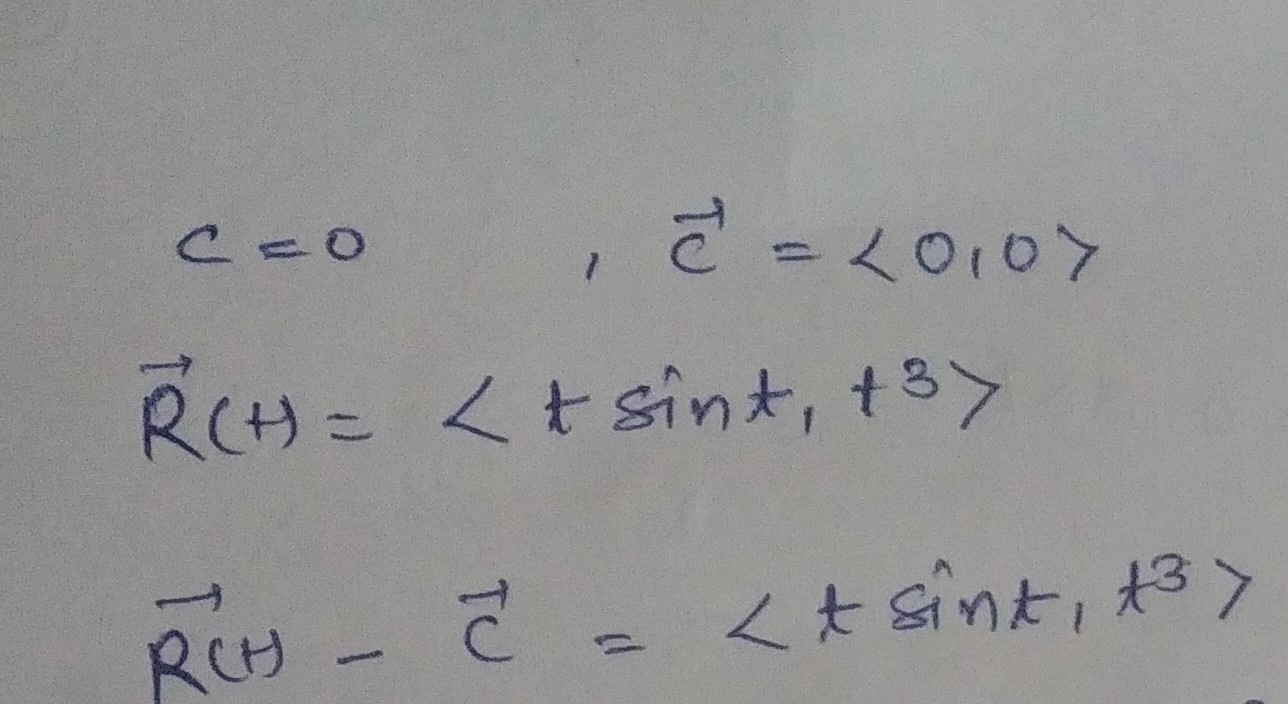 c = 0 , c⃗ = <0,0>
R⃗(t) = < t sint, t³>
R⃗(t) - c⃗ = < t sint, t³ >